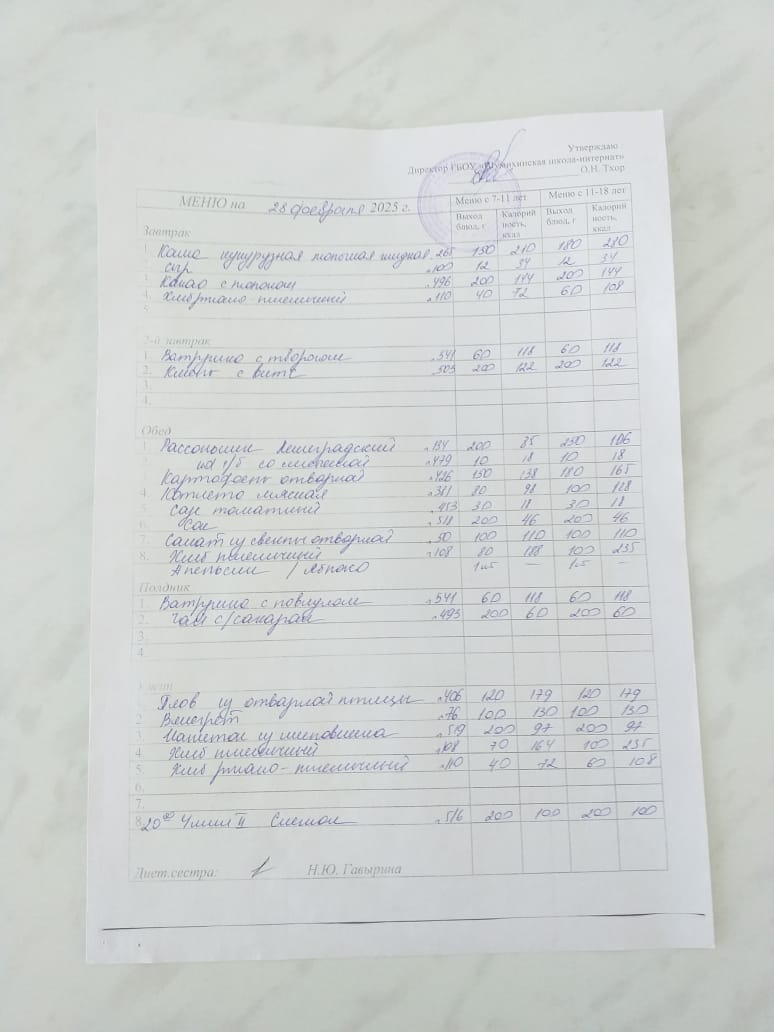 Утверждаю
Директор ГБОУ «Шумихинская школа-интернат»
О.Н. Тхор
МЕНЮ на 28 февраля 2025 г. Меню с 7-11 лет Меню с 11-18 лет
Выход блюд, г Калорийность, ккал Выход блюд, г Калорийность, ккал
Завтрак
1. Каша кукурузная молочная жидкая 265 150 210 180 280
сыр 100 12 34 12 34
3. Какао с молоком 496 200 144 200 144
4. Хлеб ржано пшеничный 110 40 72 60 108
5.
2-й завтрак
1. Ватрушка с творогом 541 60 118 60 118
2. с вит С 505 200 122 200 122
3.
4.
Обед
1. Рассольник Ленинградский 134 200 85 250 106
на к/б со сметаной 479 10 18 10 18
Картофель отварной 426 150 138 180 165
4. Котлета мясная 381 80 98 100 128
5. Соус томатный 453 30 18 30 18
6. Сок 518 200 46 200 46
7. Салат из свеклы отварной 50 100 110 100 110
8. Хлеб пшеничный 108 80 188 100 235
Апельсин / Яблоко 1шт — 1шт —
Полдник
1. Ватрушка с повидлом 541 60 118 60 118
2. Чай с/сахаром 493 200 60 200 60
3.
4.
Ужин
Плов из отварной птицы 406 120 179 120 179
2 Винегрет 76 100 130 100 130
3. Напиток из шиповника 519 200 97 200 97
4. Хлеб пшеничный 108 70 164 100 235
5. Хлеб ржано-пшеничный 110 40 72 60 108
6.
7.
8. 20⁰⁰ Ужин II Снежок 516 200 100 200 100
Диет.сестра: Н.Ю. Гавырина